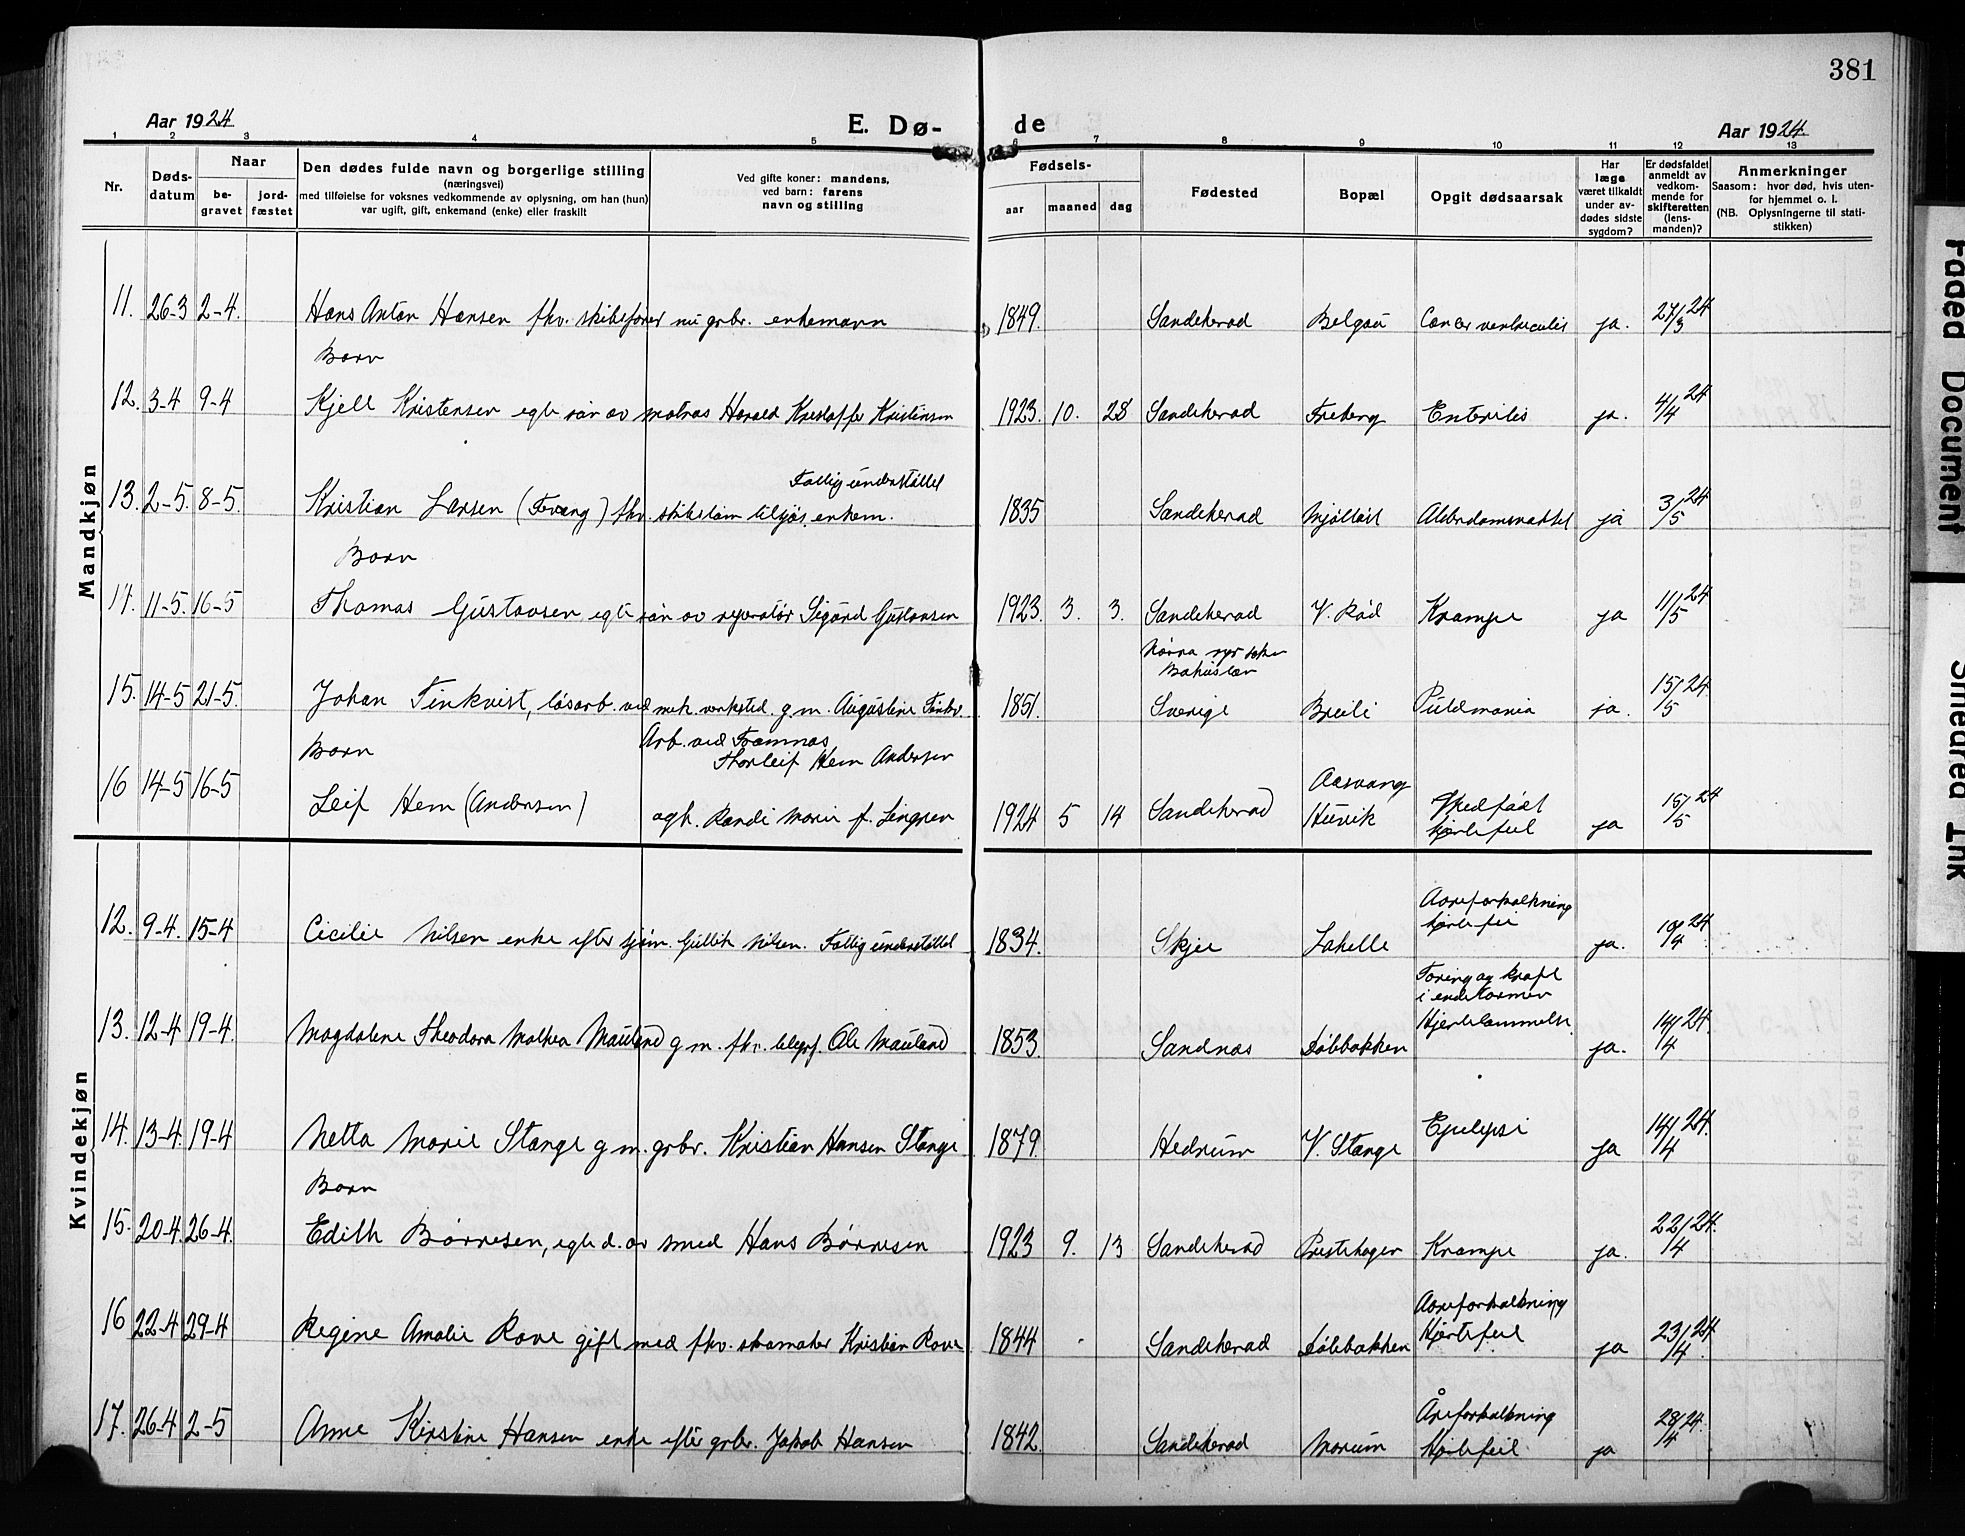 381
Aar 1924
E. Dø-
de
Aar 1924
1 2 3 4 5 6 7 8 9 10 11 12 13
Nr.
Døds-
datum
Naar
be-
gravet
jord-
fæstet
Den dødes fulde navn og borgerlige stilling
(næringsvei)
med tilføielse for voksnes vedkommende av oplysning, om han (hun)
var ugift, gift, enkemand (enke) eller fraskilt
Ved gifte koner: mandens,
ved barn: farens
navn og stilling
Fødsels-
aar
maaned
dag
Fødested
Bopæl
Opgit dødsaarsak
Har
læge
været tilkaldt
under av-
dødes sidste
sygdom?
Er dødsfaldet
anmeldt av
vedkom-
mende for
skifteretten
(lens-
manden)?
Anmerkninger
Saasom: hvor død, hvis uten-
for hjemmet o. l.
(NB. Oplysningerne til stati-
stikken)
Mandkjøn
11. 26-3 2-4. Hans Anton Hansen fhv. skibsfører nu grbr. enkemann 1849. Sandeherad Belgau Cancer ventriculis ja. 27/3 24
Barn
12. 3-4 9-4 Kjell Kristensen egte søn av matros Harald Kristoffer Kristensen 1923. 10. 28 Sandeherad Freberg Enteritis ja. 4/4 24
Fattig understøttet
13. 2-5. 8-5. Kristian Larsen (Fevang) fhv. skibstøm. tilsjøs, enkem. 1835 Sandeherad Mjølløst Alderdomsvakhet ja 3/5 24
Barn
14. 11-5. 16-5 Thomas Gustavsen egte søn av reparatør Sigurd Gustavsen 1923. 3. 3. Sandeherad V. Rød Krampe ja 11/5 24
Bahuslæn
15. 14-5 21-5. Johan Finkvist, løsarb. ved mek. verksted. g m. Augustine Finkv. 1851. Sverige Breili ja. 15/5 24
Barn
Arb. ved Framnæs
Thorleif Hem Andersen
16 14-5 16-5 Leif Hem (Andersen)
ogh. Randi Marie f. Lingren 1924 5 14 Sandeherad
Aasvang
Huvik
Medfødt
hjertefeil ja 15/5 24
Kvindekjøn
Aareforkalkning
12. 9-4. 15-4 Cicilie Nilsen enke efter sjøm. Gullik Nilsen. Fattig understøttet 1834. Skjee Lahelle hjertefei ja. 10/4 24
Tæring av kraft
i endetarmen
13. 12-4 19-4 Magdalene Theodora Mathea Mauland g m. fhv. telegrf. Ole Mauland 1853. Sandnæs Dølebakken Hjertelammelse. ja. 14/4 24.
14. 13-4. 19-4 Netta Marie Stange g m. grbr. Kristian Hansen Stange 1879. Hedrum V. Stange Epilepsi ja 14/4 24.
Barn
15. 20-4. 26-4. Edith Børresen, egte d. av smed Hans Børresen 1923 9. 13 Sandeherad Prestehagen Krampe ja. 22/4 24.
Aareforkalkning
16 22-4 29-4 Regine Amalie Rove gift med fhv. skomaker Kristian Rove 1844 Sandeherad Dølebakken Hjertefeil ja 23/4 24.
Åreforkalkning
17. 26-4 2-5 Anne Kirstine Hansen enke efter grbr. Jakob Hansen 1842. Sandeherad Marum Hjertefeil ja 28/4 24.
Faded Document
Smeared Ink